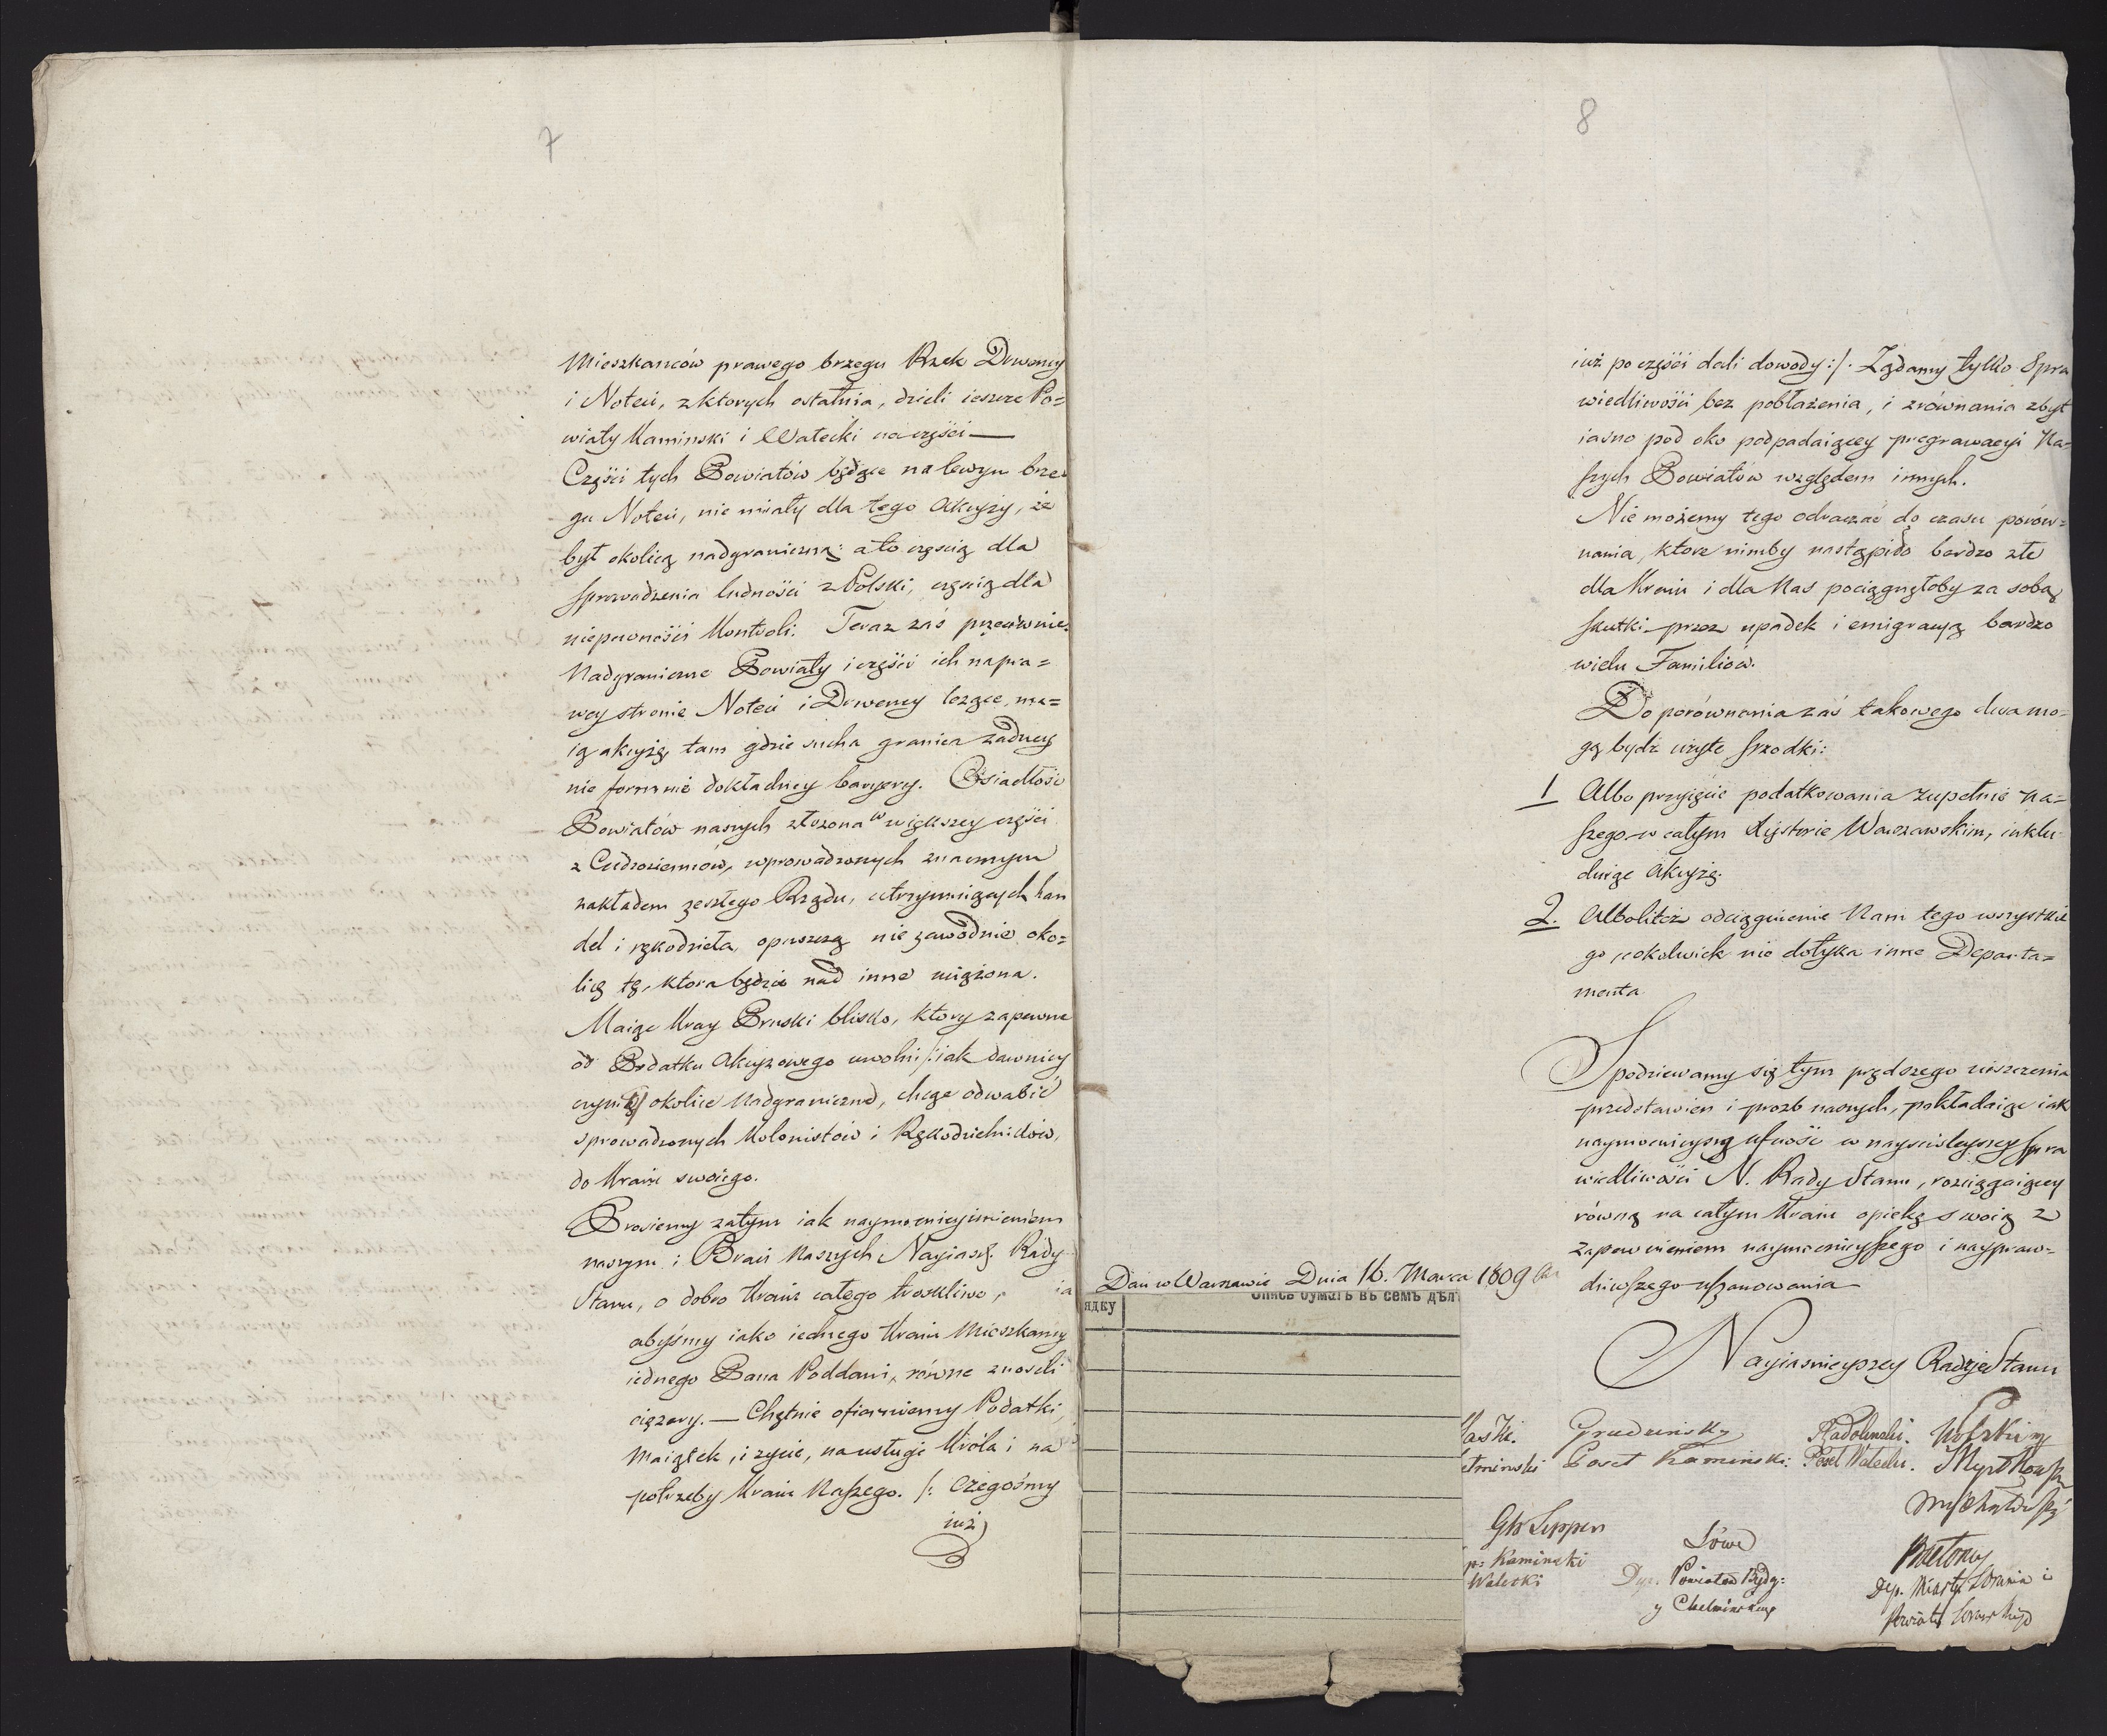 7
Mieszkanców prawego brzegu Rzek Drwency
i Noteci, z ktorych ostatnia, dzieli ieszcze Po=
wiaty Kaminski i Wałecki na części —
Części tych Powiatów będące na lewym brze
gu Noteci, nie miały dla tego Akcyzy, że
był okolicą nadgraniczną: a to częscią dla
sprowadzenia ludności z Polski, częscią dla
niepewności Kontroli. Teraz zaś przeciwnie
Nadgraniczne Powiaty i części ich na pra=
wey stronie Noteci i Drwency leżące, ma=
ią akcyzę, tam gdzie sucha granica żadney
nie formuie dokładney baryery. Osiadłość
Powiatów naszych złożona w większey części
z Cudzoziemców, wprowadzonych znacznym
nakładem zeszłego Rządu, utrzymuiących han
del i rękodzieła, opuszczą nie zawodnie oko=
licę tę, ktora będzie nad inne uciążona.
Maiąc Kray Pruski blisko, ktory zapewne
od Podatku Akcyzowego uwolni /: iak dawniey
czynił :/ okolice Nadgraniczne, chcąc odwabić
sprowadzonych Kolonistów i Rękodzielników,
do Kraiu swoiego.
Prosiemy zatym iak naymocniey imieniem
naszym i Braci Naszych Nayiasn. Rady
Stanu, o dobro Kraiu całego troskliwe,
abyśmy iako iednego Kraiu Mieszkancy
iednego Pana Poddani, równe znosili
ciężary. — Chętnie ofiaruiemy Podatki,
Maiątek, i życie, na usługi Króla i na
potrzeby Kraiu Naszego. /: Czegośmy
iuż
8
iuż po części dali dowody :/. Żądamy tylko Spra
wiedliwości bez pobłażenia, i zrównania zbyt
iasno pod oko podpadaiącey pregrawacyi Na=
szych Powiatów względem innych.
Nie możemy tego odraczać do czasu porów=
nania, ktore nimby nastąpiło bardzo złe
dla Kraiu i dla Nas pociągnęłoby za sobą
skutki przez upadek i emigracyą bardzo
wielu Familiów.
Do porównania zaś takowego dwa mo=
gą bydź użyte srzodki:
1 Albo przyięcie podatkowania zupełnie na=
szego w całym Xięstwie Warszawskim, inklu
duiąc Akcyzę.
2. Albo liteż odciągnienie Nam tego wszystkie
go cokolwiek nie dotyka inne Departa=
menta.
Spodziewamy się tym prędszego uiszczenia
przedstawien i prozb naszych, pokładaiąc iak
naymocnieyszą ufność w nayscisleyszey spra
wiedliwości N. Rady Stanu, rozciągaiącey
równą na całym Kraiu opiekę swoią z
zapewnieniem naymocnieyszego i naypraw=
dziwszego uszanowania
Dan w Warszawie Dnia 16. Marca 1809
Nayiasnieyszey Radzie Stanu
ядку
Опись бумагъ въ семъ дѣл
Grudzinski Radolinski.
Poseł Kaminski. Poseł Wałecki.
Löwe
Kaminski
Walecki
Dep. Powiatów Bydg:
y Chelminskiego
Dep. Miasta Torunia i
Powiatu Torunskiego